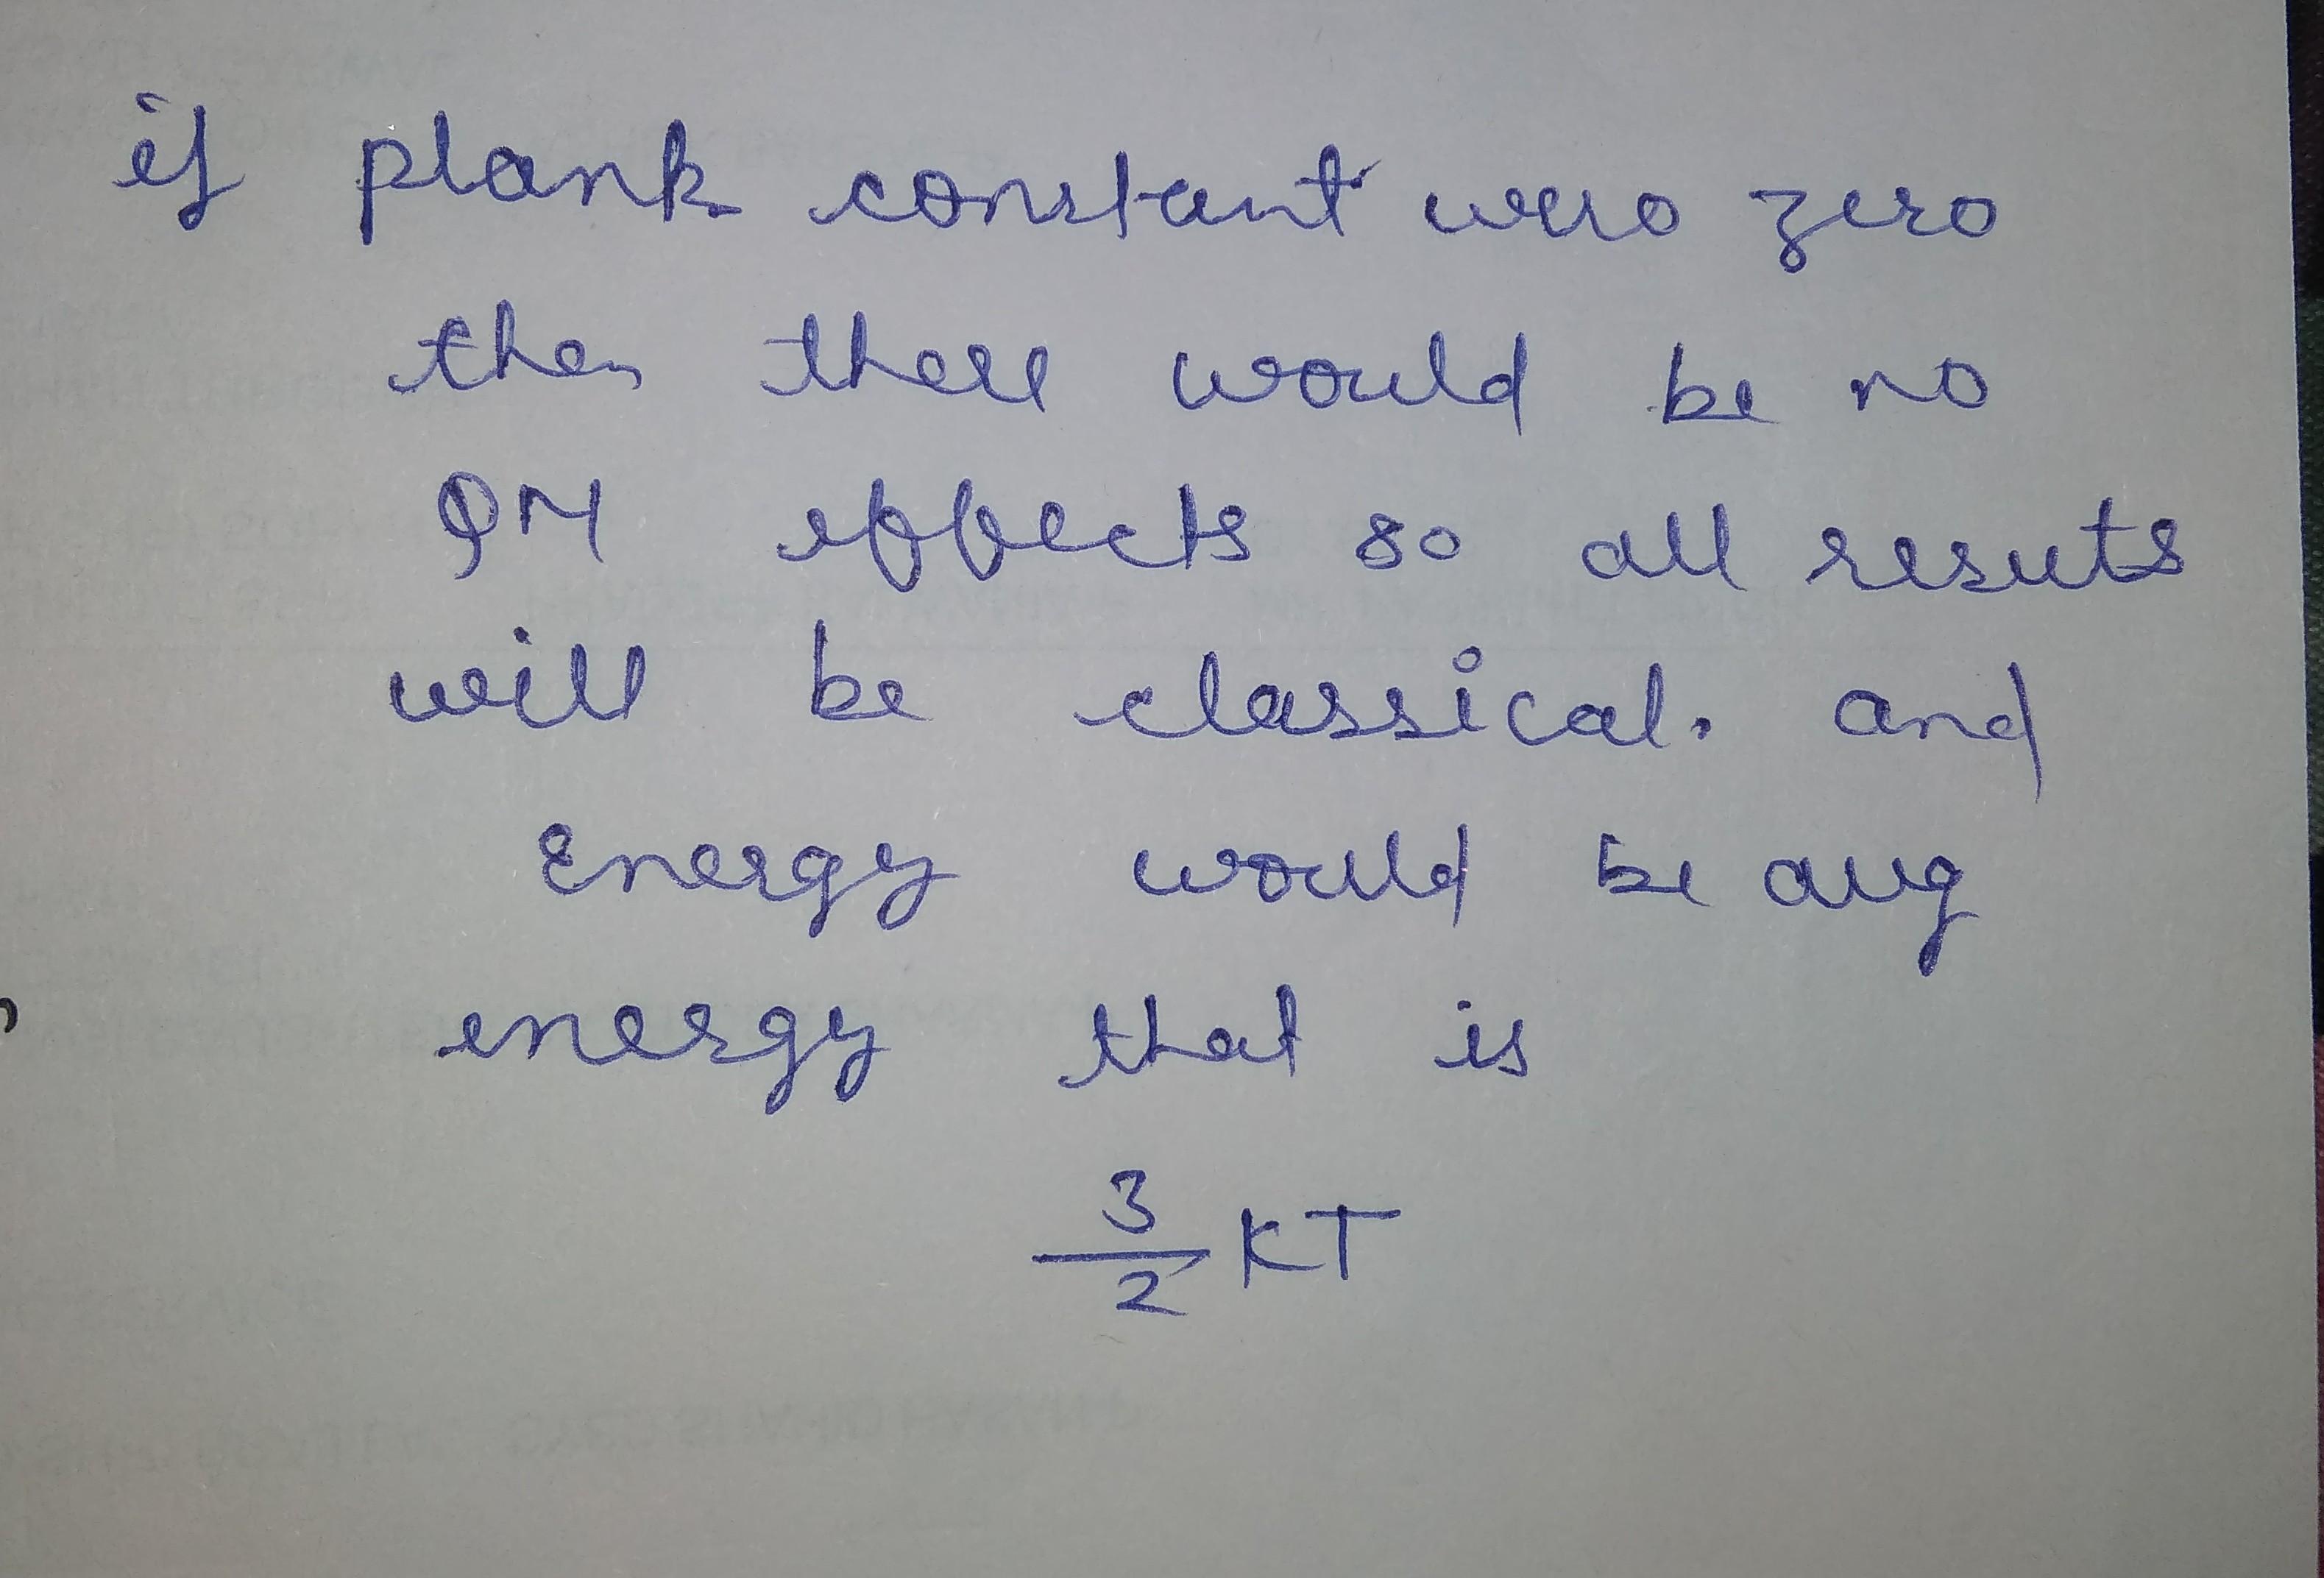 if plank constant were zero
then there would be no
QM effects so all resuts
will be classical. and
Energy would be avg
energy that is
3/2 KT